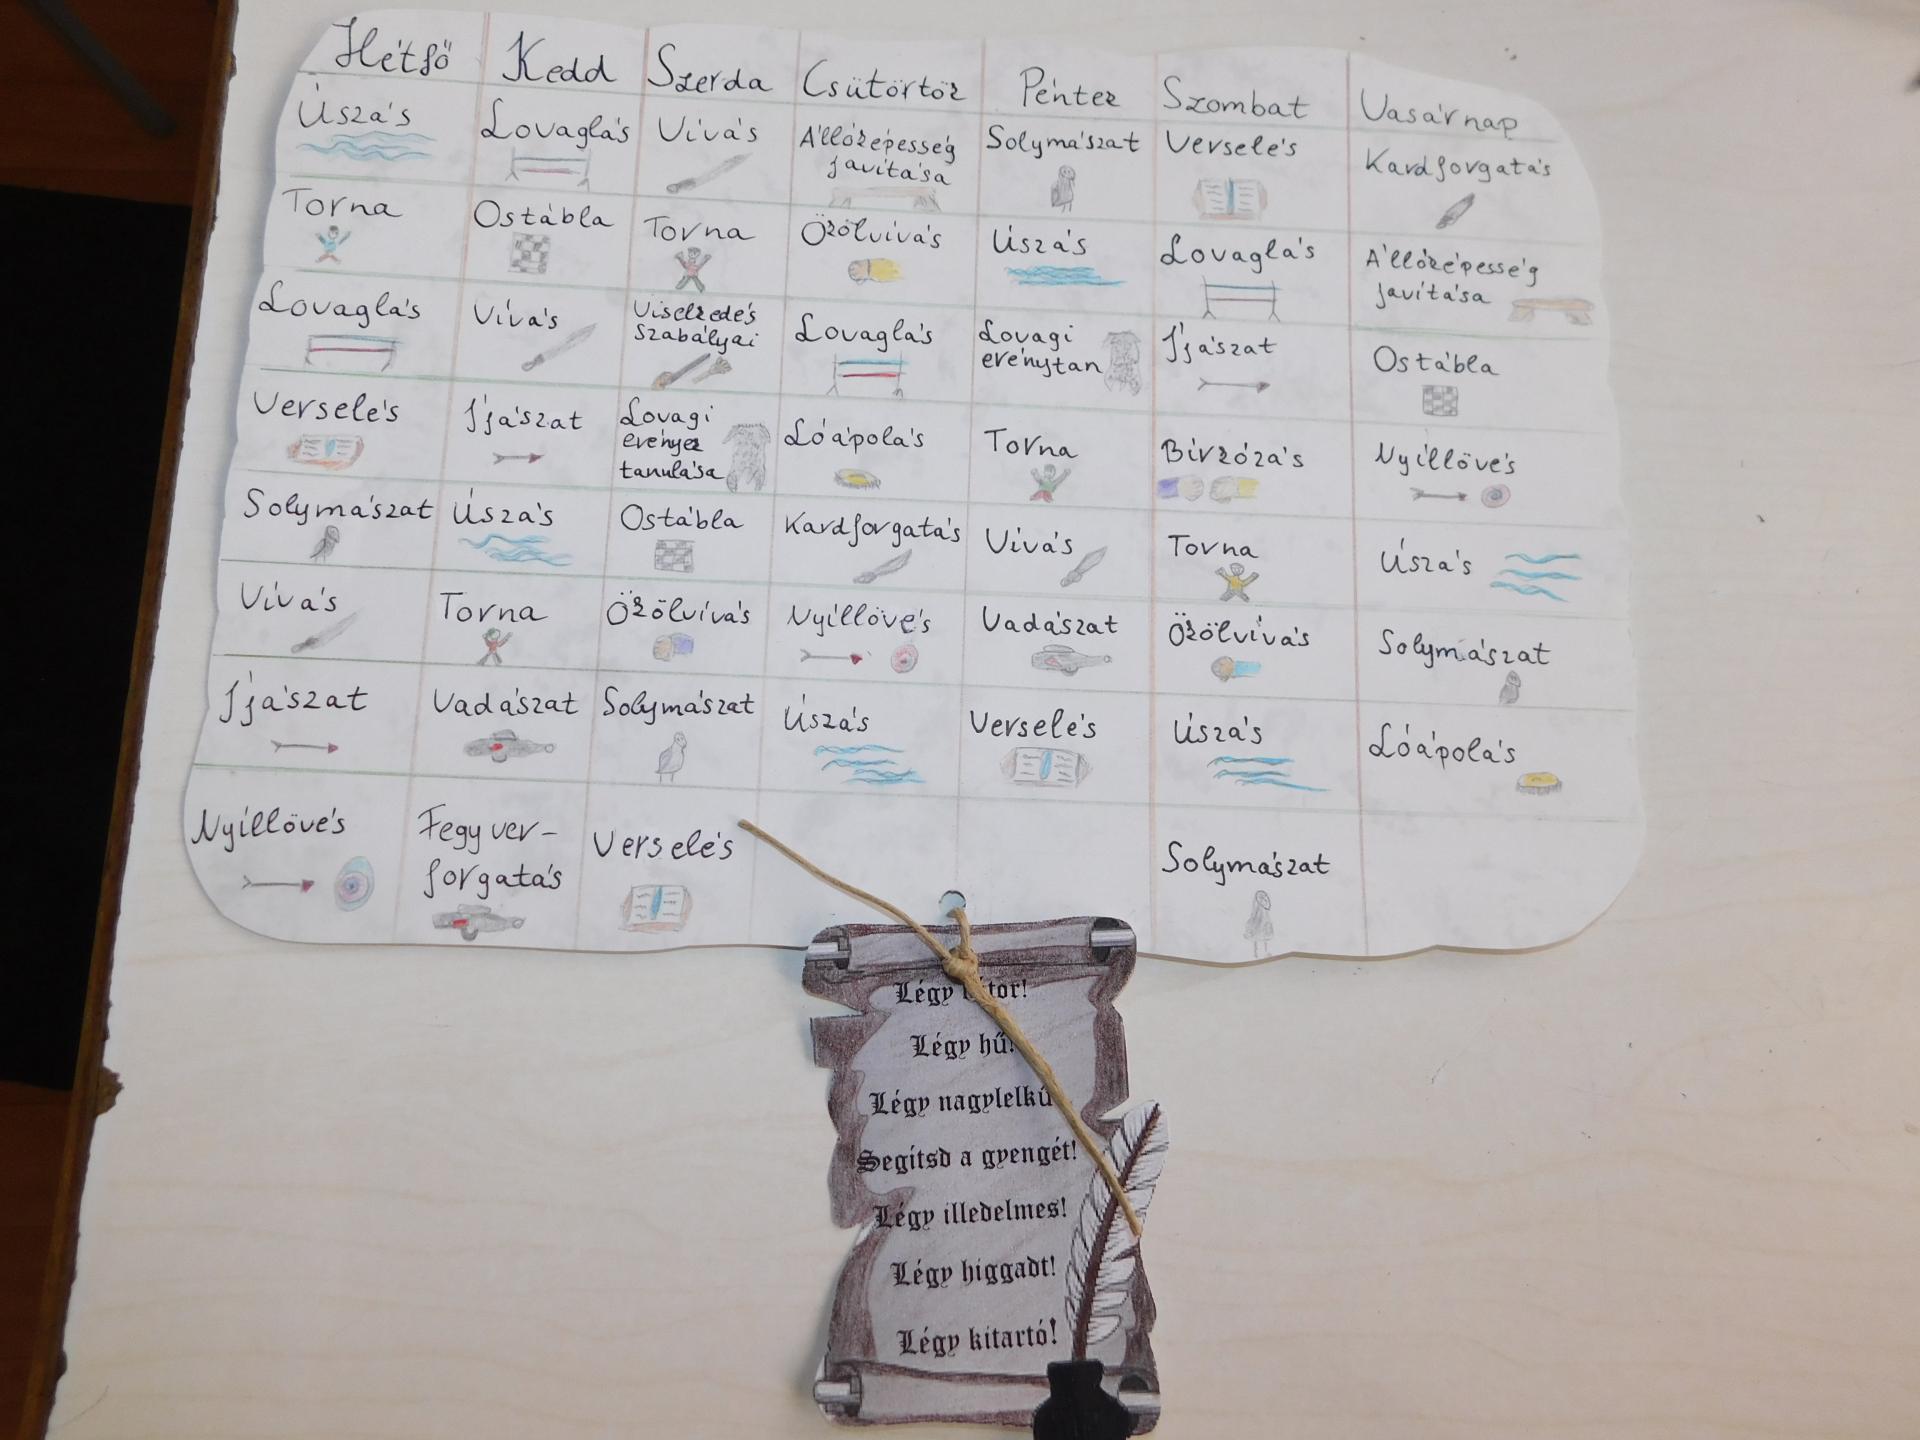 Hétfő Kedd Szerda Csütörtök Péntek Szombat Vasárnap
Úszás Lovaglás Vívás Állóképesség javítása Solymászat Verselés Kardforgatás
Torna Ostábla Torna Ökölvívás Úszás Lovaglás Állóképesség javítása
Lovaglás Vívás Viselkedés szabályai Lovaglás Lovagi erénytan Íjászat Ostábla
Verselés Íjászat Lovagi erények tanulása Lóápolás Torna Birkózás Nyíllövés
Solymászat Úszás Ostábla Kardforgatás Vívás Torna Úszás
Vívás Torna Ökölvívás Nyíllövés Vadászat Ökölvívás Solymászat
Íjászat Vadászat Solymászat Úszás Verselés Úszás Lóápolás
Nyíllövés Fegyver-forgatás Verselés Solymászat
Légy
Légy hű!
Légy nagylelkű
Segítsd a gyengét!
Légy illedelmes!
Légy higgadt!
Légy kitartó!